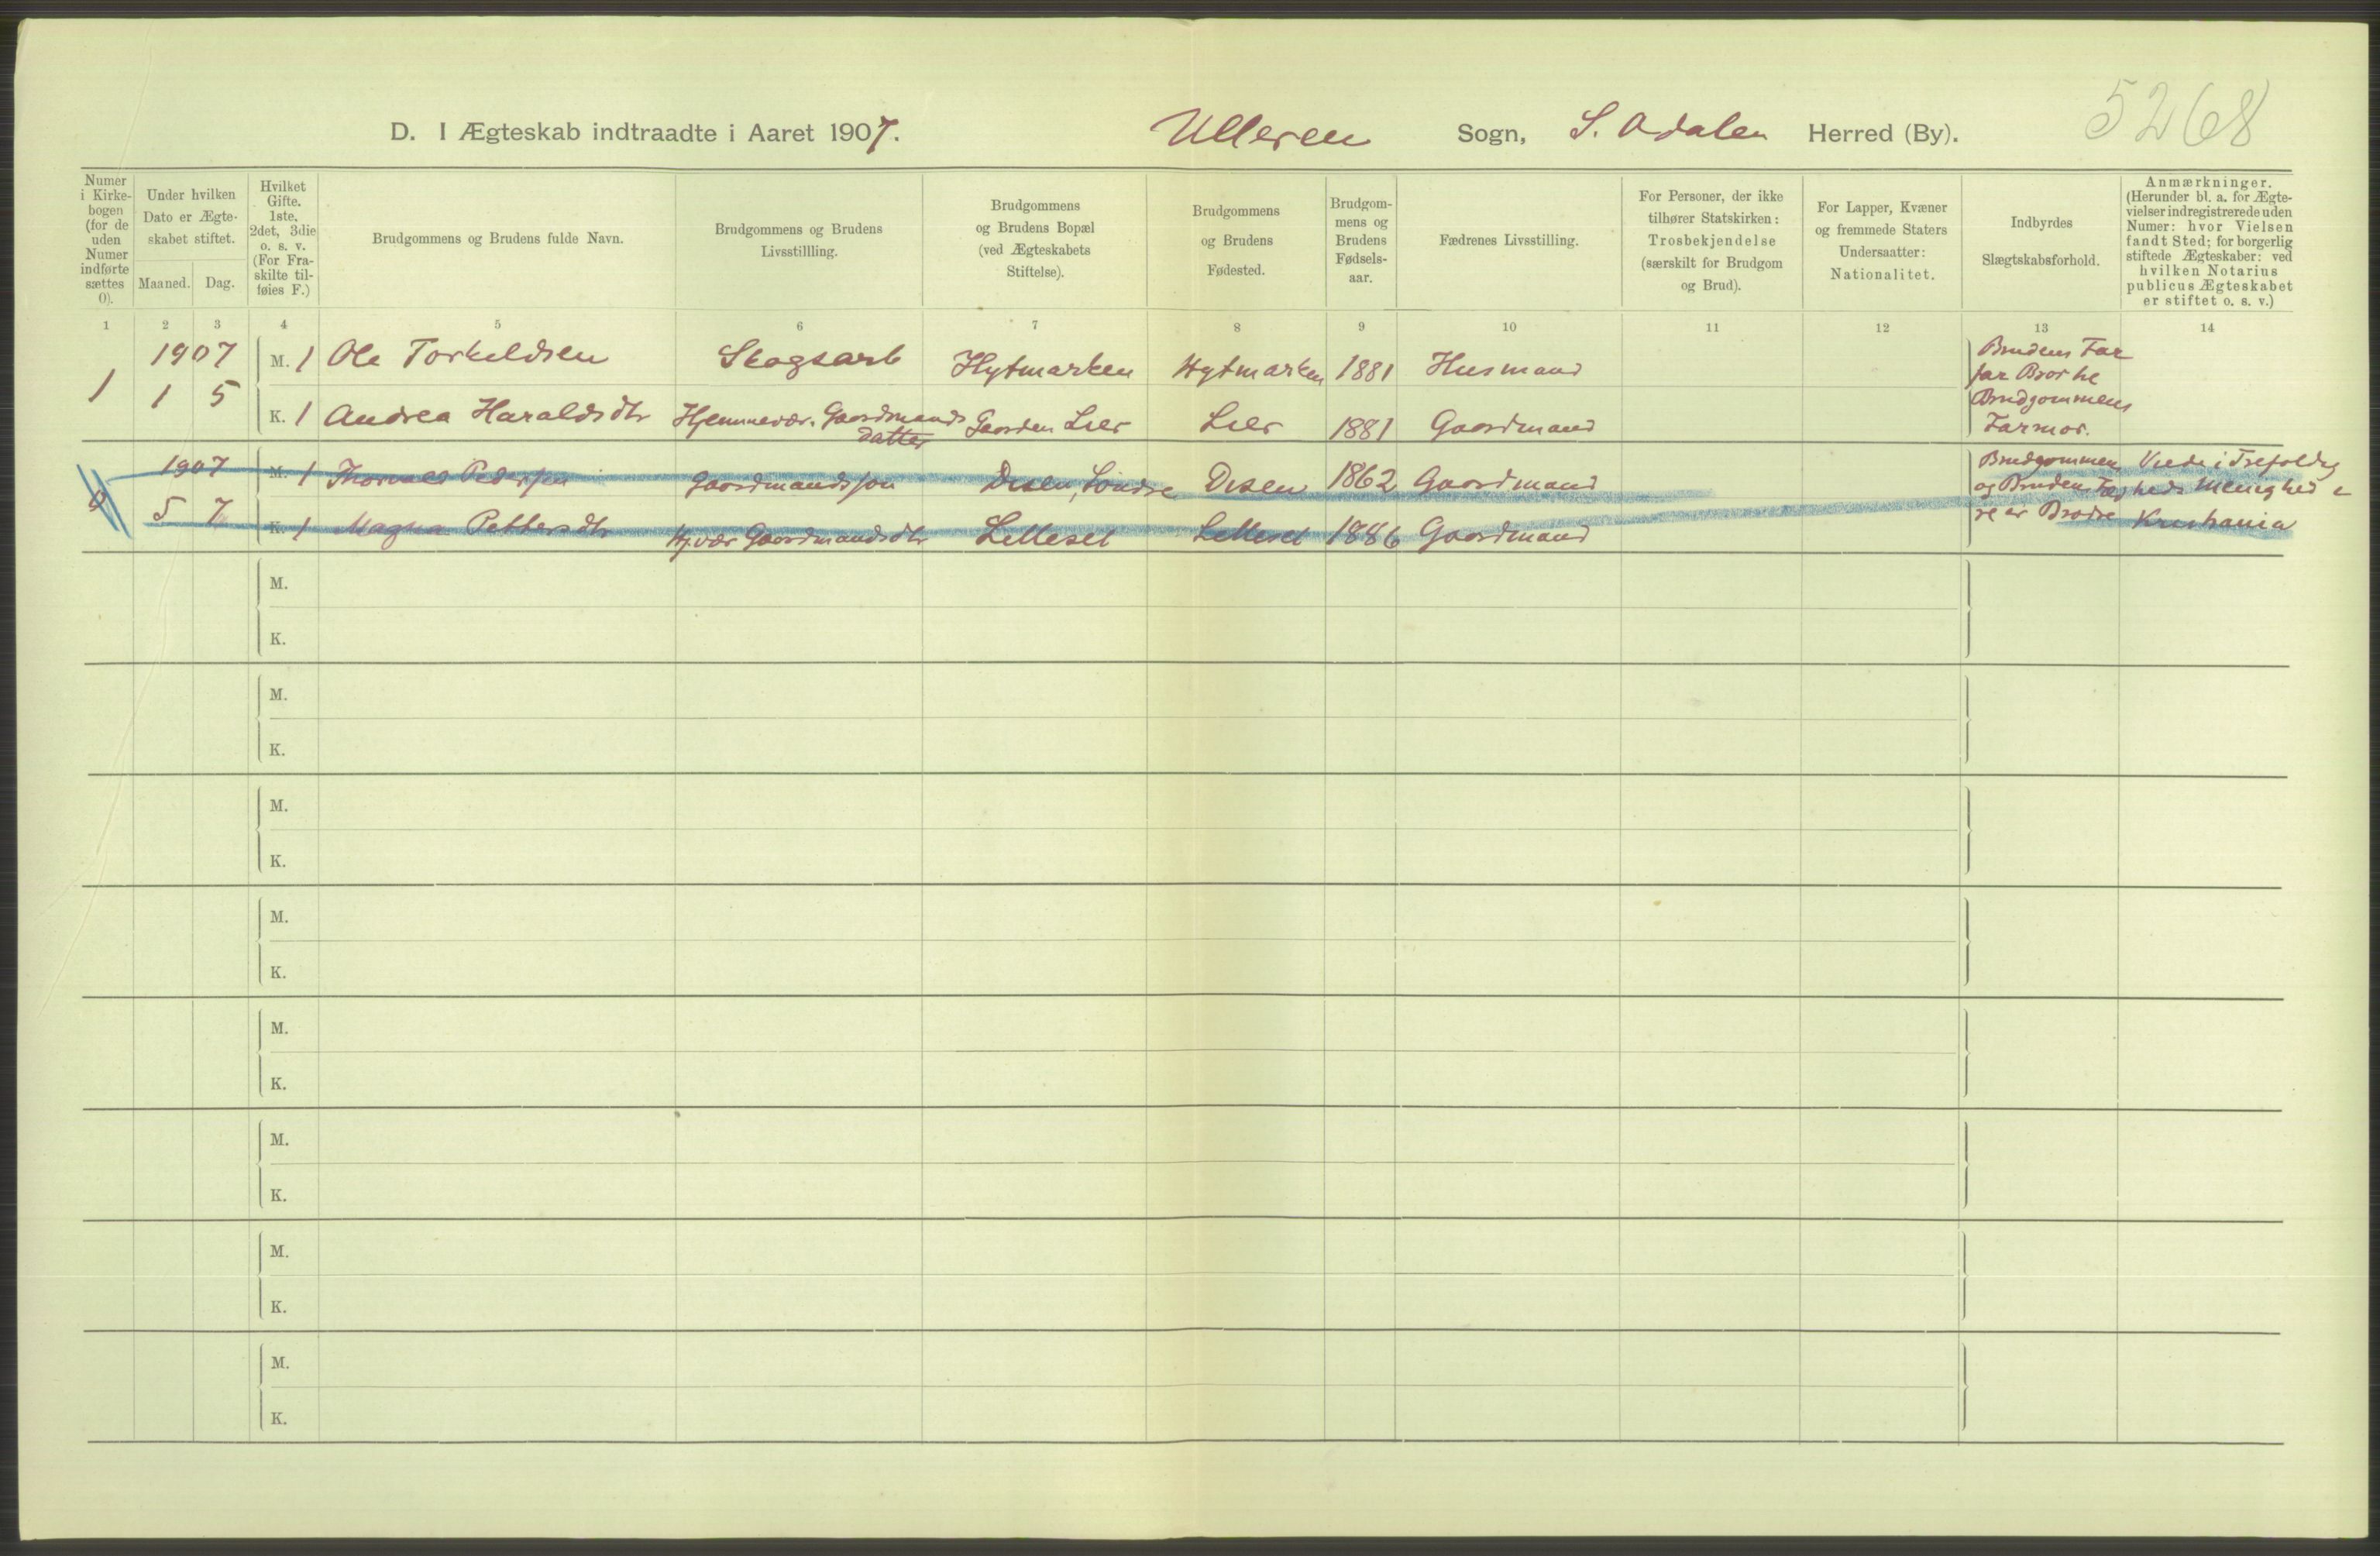 D. I Ægteskab indtraadte i Aaret 1907. Ulleren Sogn, S. Odalen Herred (By). 5268
Numer i Kirke- bogen (for de uden Numer indførte sættes 0).
Under hvilken Dato er Ægte- skabet stiftet.
Maaned. Dag.
Hvilket Gifte. 1ste, 2det, 3die o. s. v. (For Fra- skilte til- føies F.)
Brudgommens og Brudens fulde Navn.
Brudgommens og Brudens Livsstillling.
Brudgommens og Brudens Bopæl (ved Ægteskabets Stiftelse).
Brudgommens og Brudens Fødested.
Brudgom- mens og Brudens Fødsels- aar.
Fædrenes Livsstilling.
For Personer, der ikke tilhører Statskirken: Trosbekjendelse (særskilt for Brudgom og Brud).
For Lapper, Kvæner og fremmede Staters Undersaatter: Nationalitet.
Indbyrdes Slægtskabsforhold.
Anmærkninger. (Herunder bl. a. for Ægte- vielser indregistrerede uden Numer: hvor Vielsen fandt Sted; for borgerlig stiftede Ægteskaber: ved hvilken Notarius publicus Ægteskabet er stiftet o. s. v.)
1 2 3 4 5 6 7 8 9 10 11 12 13 14
1907 M. 1 Ole Torkeldsen Skogsarb Hytmarken Hytmarken 1881 Husmand
1 1 5 K. 1 Andrea Haraldsdtr Hjemmevær. Gaardmands datter Gaarden Lier Lier 1881 Gaardmand
Brudens Far
far Bror te
Brudgommens
Farmor.
1907 M. 1 Thorvald Pedersen Gaardmandssøn Disen, Søndre Disen 1862 Gaardmand
0 5 7 K. 1 Magna Pettersdtr Hj.vær Gaardmandsdtr Lilleset Lilleset 1886 Gaardmand
Brudgommens
og Brudens Fæd
re er Brødre
Viede i Trefoldig
heds Menighed i
Kristiania
M.
K.
M.
K.
M.
K.
M.
K.
M.
K.
M.
K.
M.
K.
M.
K.